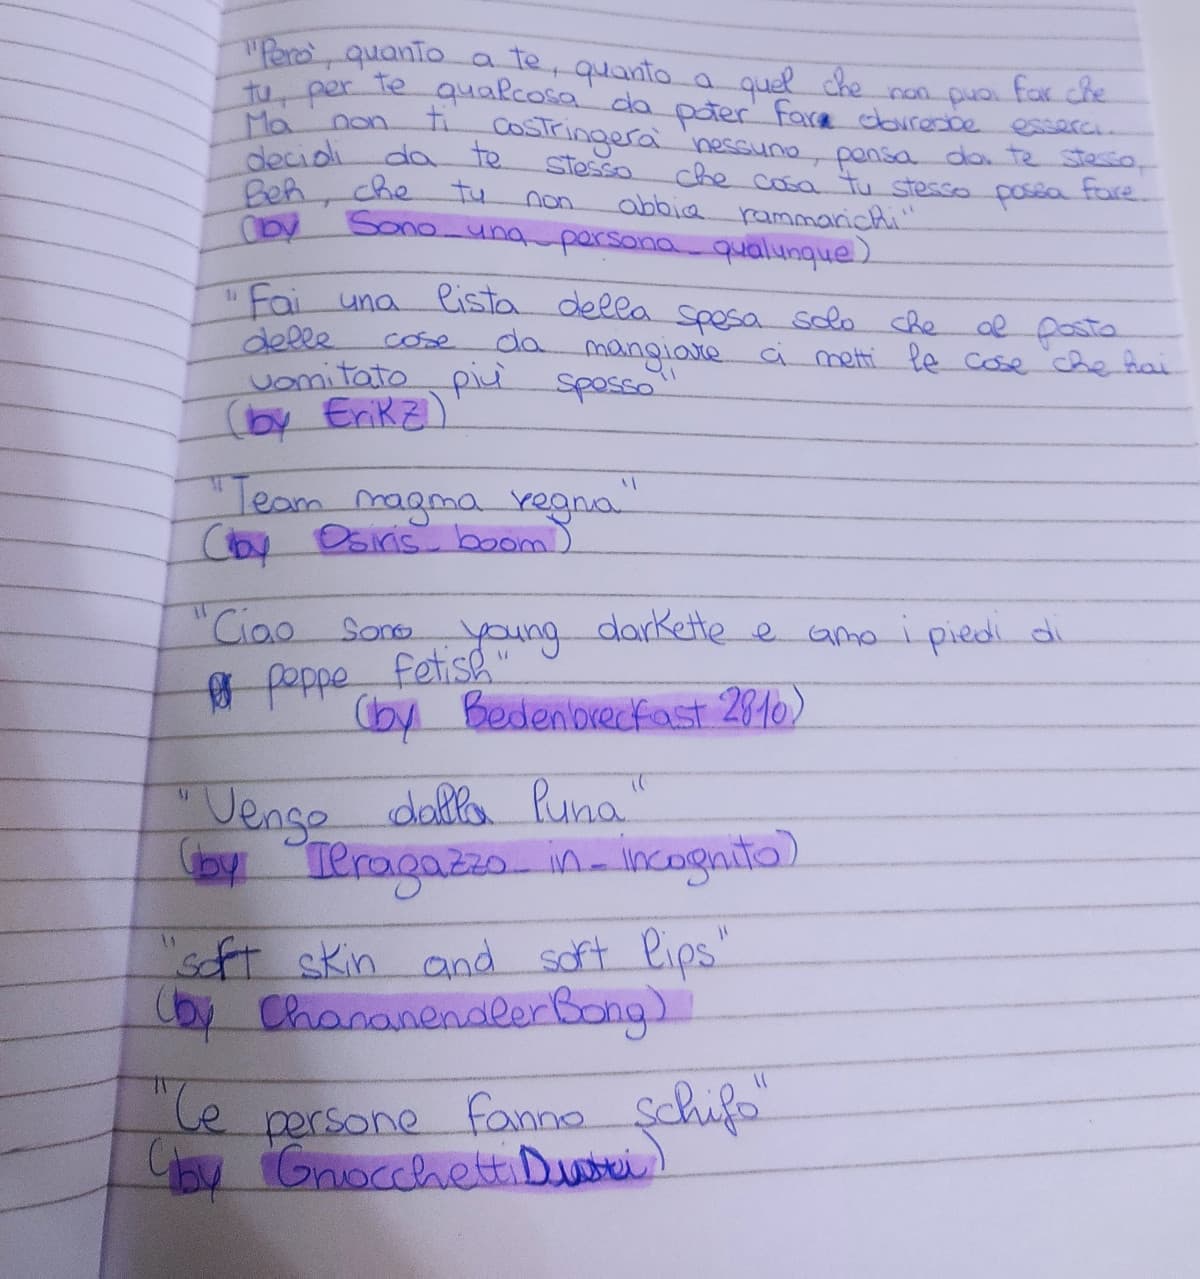 "Però, quanto a te, quanto a quel che non puoi far che
tu, per te qualcosa da poter fare dovrebbe esserci.
Ma non ti costringerà nessuno, pensa da te stesso,
decidi da te stesso che cosa tu stesso possa fare.
Beh, che tu non abbia rammarichi"
(by Sono_una_persona_qualunque)
"Fai una lista della spesa solo che al posto
delle cose da mangiare ci metti le cose che hai
vomitato più spesso"
(by ErikZ)
"Team magma regna"
(by Osiris_boom)
"Ciao sono young darkette e amo i piedi di
peppe fetish"
(by Bedenbreckfast 2810)
"Vengo dalla luna"
(by Ilragazzo_in_incognito)
"soft skin and soft lips"
(by ChananendlerBong)
"Le persone fanno schifo"
(by Gnocchetti